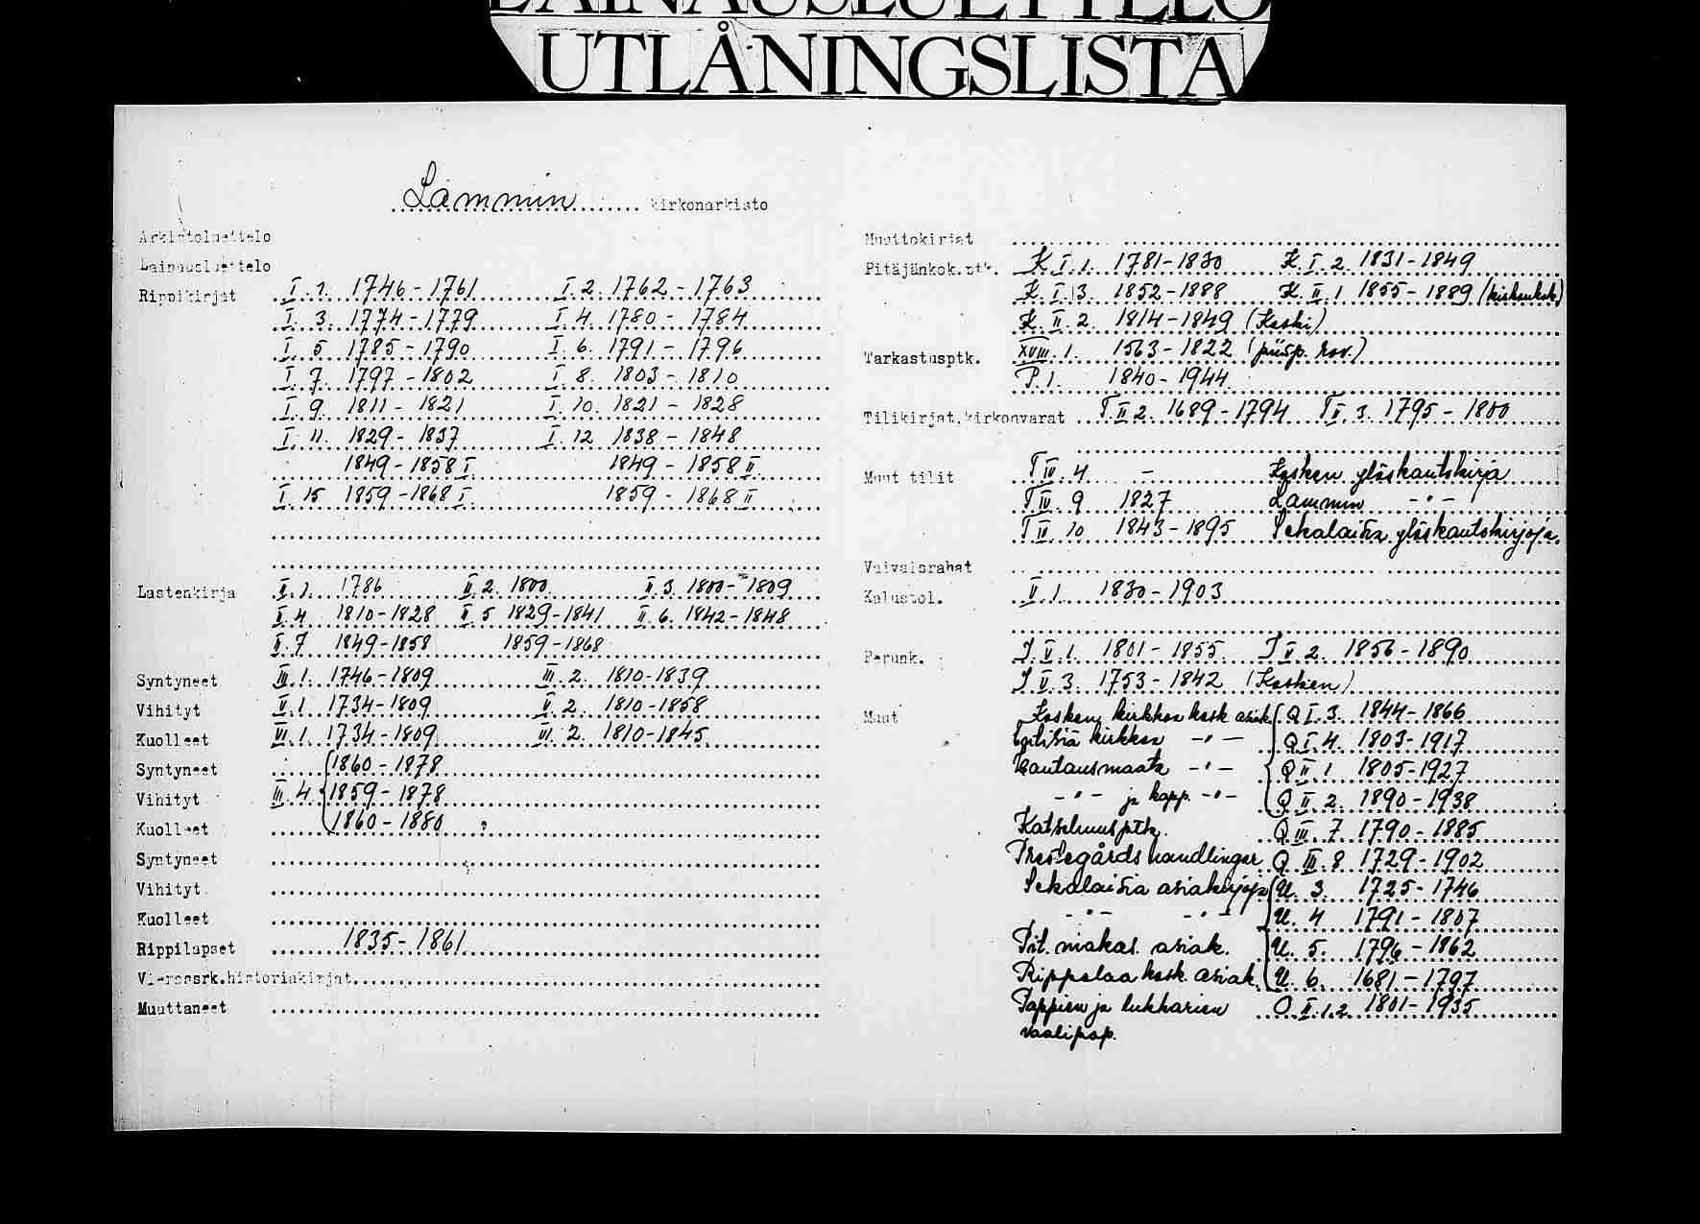 LAINAUSLUETTELO
UTLÅNINGSLISTA
Lammin kirkonarkisto
Arkistoluettelo
Lainausluettelo
Rippikirjat I. 1. 1746-1761 I. 2. 1762-1763
I. 3. 1774-1779 I. 4. 1780-1784
I. 5 1785-1790 I. 6. 1791-1796
I. 7. 1797-1802 I. 8. 1803-1810
I. 9. 1811-1821 I. 10. 1821-1828
I. 11. 1829-1837 I. 12 1838-1848
1849-1858 I. 1849-1858 II.
I. 15 1859-1868 I. 1859-1868 II
Lastenkirja II. 1. 1786 II. 2. 1800 II. 3. 1800-1809
II. 4. 1810-1828 II. 5 1829-1841 II. 6. 1842-1848
II. 7 1849-1858 1859-1868
Syntyneet III. 1. 1746-1809 III. 2. 1810-1839
Vihityt 1. 1734-1809 2. 1810-1858
Kuolleet 1. 1734-1809 2. 1810-1845
Syntyneet 1860-1878
Vihityt III. 4. 1859-1878
Kuolleet 1860-1880
Syntyneet
Vihityt
Kuolleet
Rippilapset 1835-1861
Vierassrk.historiakirjat
Muuttaneet
Muuttokirjat
Pitäjänkok.ptk. K I. 1. 1781-1830 K. I. 2. 1831-1849
K. I. 3. 1852-1888 K. II. 1 1855-1889 (kirkonkok.)
K. II. 2. 1814-1849 (Koski)
Tarkastusptk. XVIII. 1. 1563-1822 (piisp. kov.)
P. 1. 1840-1944
Tilikirjat, kirkonvarat T. II 2. 1689-1794 T II. 3. 1795-1800
Muut tilit T IV. 4 - Kosken ylöskantokirja
T IV. 9 1827 Lammin -"-
T IV. 10 1843-1895 Sekalaisia ylöskantokirjoja.
Vaivaisrahat
Kalustol. II. 1. 1830-1903
Perunk. J. V. 1. 1801-1855 J V. 2. 1856-1890
J V. 3. 1753-1842 (Kosken)
Muut Kosken kirkkoa kosk. asiak. Q I. 3. 1844-1866
kirkkoa -"- Q I. 4. 1803-1917
Hautausmaata -"- Q II. 1 1805-1927
-"- ja kapp. -"- Q II. 2. 1890-1938
Katselmusptk. Q III. 7 1790-1885
Prestegårds handlingar Q III. 8 1729-1902
Sekalaisia asiakirjoja U. 3. 1725-1746
-"- -"- U. 4 1791-1807
Pit. makas. asiak. U. 5. 1796-1862
Rippolaa kosk. asiak. U. 6. 1681-1797
Pappien ja lukkarien O. II. 1.2. 1801-1935
vaalipap.